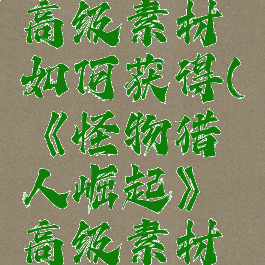 高级素材
如何获得(
《怪物猎
人崛起》
高级素材